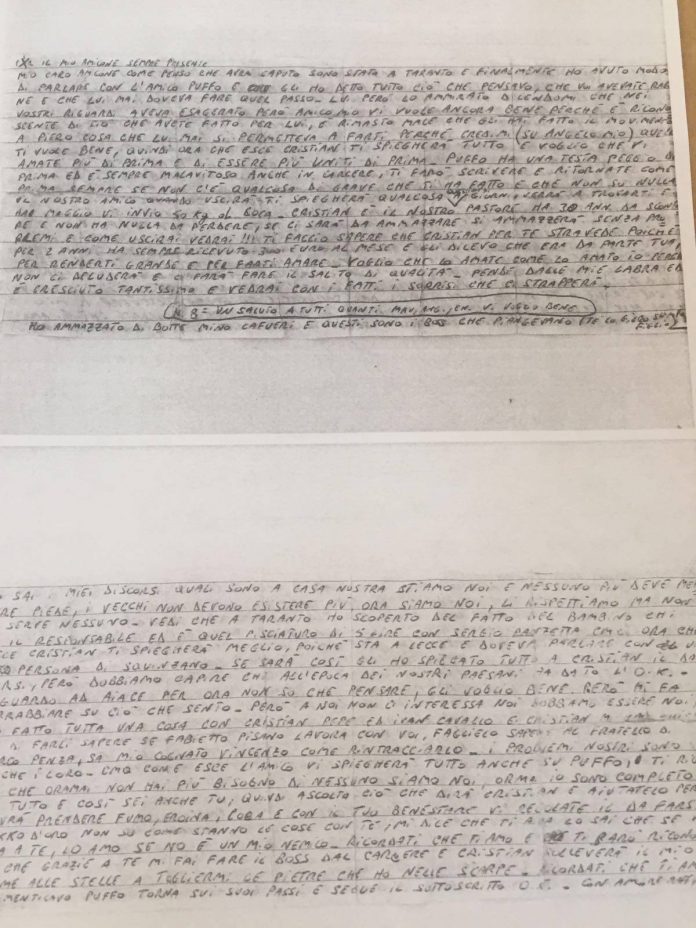 IL MIO AMICONE SEMPRE PRESENTE
MIO CARO AMICONE COME PENSO CHE AVRAI CAPUTO SONO STATO A TARANTO E FINALMENTE HO AVUTO MODO
DI PARLARE CON L'AMICO PUFFO E GLI HO DETTO TUTTO CIÒ CHE PENSAVO, CHE VOI AVEVATE RAG
NE E CHE LUI MAI DOVEVA FARE QUEL PASSO. LUI PERÒ LO AMMIRATO DICENDOMI CHE NEI
VOSTRI RIGUARDI AVEVA ESAGERATO PERÒ AMICO MIO VI VUOLE ANCORA BENE PERCHÈ È RICONO
SCENTE DI CIÒ CHE AVETE FATTO PER LUI, È RIMASTO MALE CHE GLI HAI FATTO IL MOVIMENT
A PIERO COSA CHE LUI MAI SI PERMETTEVA A FARTI PERCHÈ CREDIMI (SU ANGELO MIO) QUELL
TI VUOLE BENE, QUINDI ORA CHE ESCE CRISTIAN TI SPIEGHERÀ TUTTO E VOGLIO CHE VI
AMATE PIÙ DI PRIMA E DI ESSERE PIÙ UNITI DI PRIMA. PUFFO HA UNA TESTA PEGGIO DI
PRIMA ED È SEMPRE MALAVITOSO ANCHE IN CARCERE, TI FARÒ SCRIVERE E RITORNATE COME
PRIMA SEMPRE SE NON C'È QUALCOSA DI GRAVE CHE TI HA FATTO E CHE NON SO NULLA
IL NOSTRO AMICO QUANDO USCIRÀ TI SPIEGHERÀ QUALCOSA GIORNI, VERRÀ A TROVARTI E
MAGGIO VI INVIO 50 KG DI COCA. CRISTIAN È IL NOSTRO PASTORE HA 20 ANNI DA SCON
RE E NON HA NULLA DA PERDERE, SE CI SARÀ DA AMMAZZARE SI AMMAZZERÀ SENZA PRO
BREMI E COME USCIRAI VEDRAI!!! TI FACCIO SAPERE CHE CRISTIAN PER TE STRAVEDE POICHÈ
PER 2 ANNI HA SEMPRE RICEVUTO 300 EURO AL MESE E GLI DICEVO CHE ERA DA PARTE TUA,
PER RENDERTI GRANDE E PER FARTI AMARE. VOGLIO CHE LO AMATE COME LO AMATO IO PERCH
NON CI DELUDERÀ E CI FARÀ FARE IL SALTO DI QUALITÀ. PENDE DALLE MIE LABRA ED
È CRESCIUTO TANTISSIMO E VEDRAI CON I FATTI I SORRISI CHE CI STRAPPERÀ.
N.B = UN SALUTO A TUTTI QUANTI VI VOGLIO BENE
HO AMMAZZATO DI BOTTE MINO CAFUERI E QUESTI SONO I BOSS CHE PIANGEVANO (TE LO GIURO
FIGLIO)
SAI I MIEI DISCORSI QUALI SONO A CASA NOSTRA STIAMO NOI E NESSUNO PIÙ DEVE MET
RE PIEDE, I VECCHI NON DEVONO ESISTERE PIÙ, ORA SIAMO NOI, LI RISPETTIAMO MA NON
SERVE NESSUNO. VEDI CHE A TARANTO HO SCOPERTO DEL FATTO DEL BAMBINO CHI
IL RESPONSABILE ED È QUEL PISCIATURO DI CON SERGIO PANZETTA CMQ ORA CH
CRISTIAN TI SPIEGHERÀ MEGLIO, POICHÈ STA A LECCE E DOVEVA PARLARE CON
PERSONA DI SQUINZANO. SE SARÀ COSÌ GLI HO SPIEGATO TUTTO A CRISTIAN IL DA
RSI, PERÒ DOBBIAMO CAPIRE CHI ALL'EPOCA DEI NOSTRI PAESANI HA DATO L'O.K.
GUARDO AD AIACE PER ORA NON SO CHE PENSARE, GLI VOGLIO BENE PERÒ MI FA
RRABBIARE SU CIÒ CHE SENTO. PERÒ A NOI NON CI INTERESSA NOI DOBBIAMO ESSERE NOI,
FATTO TUTTA UNA COSA CON CRISTIAN PEPE ED IVAN CAVALLO E CRISTIAN M
DI FARLI SAPERE SE FABIETTO PISANO LAVORA CON VOI, FAGLIELO SAPERE AL FRATELLO DI
RCO PENZA, SA MIO COGNATO VINCENZO COME RINTRACCIARLO. I PROBLEMI NOSTRI SONO
CHE I LORO. CMQ COME ESCE L'AMICO VI SPIEGHERÀ TUTTO ANCHE SU PUFFO, TI RI
CHE ORAMAI NON HAI PIÙ BISOGNO DI NESSUNO SIAMO NOI, ORMAI IO SONO COMPLETO
TUTTO E COSÌ SEI ANCHE TU, QUINDI ASCOLTA CIÒ CHE DIRÀ CRISTIAN E AIUTATELO PER
VRÀ PRENDERE FUMO, EROINA, COCA E CON IL TUO BENESTARE VI REGOLATE IL DA FARSI
D'ORO NON SO COME STANNO LE COSE CON TE, MI DICE CHE TI AMA LO SAI CHE SE
A TE, LO AMO SE NO È UN MIO NEMICO. RICORDATI CHE TI AMO E TI SARÒ RICONO
CHE GRAZIE A TE MI FAI FARE IL BOSS DAL CARCERE E CRISTIAN SOLLEVERÀ IL MIO
ME ALLE STELLE A TOGLIERMI LE PIETRE CHE HO NELLE SCARPE. RICORDATI CHE TI AM
MENTICAVO PUFFO TORNA SUI SUOI PASSI E SEGUE IL SOTTOSCRITTO O.K. CON AMORE